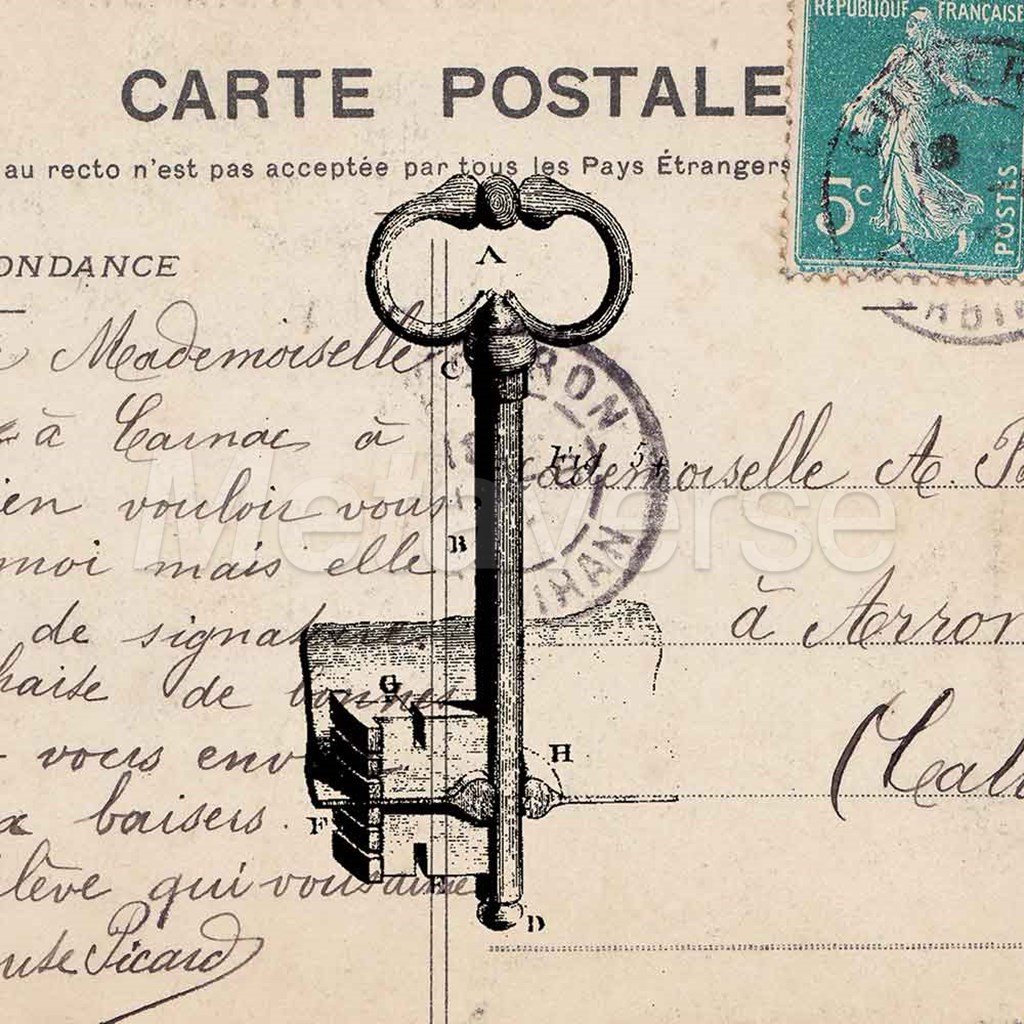 RÉPUBLIQUE FRANÇAISE
CARTE POSTALE
au recto n'est pas acceptée par tous les Pays Étrangers
5c
POSTES
ONDANCE
A
Mademoiselle
C
RON
à Carnac à
Fig. 5
ademoiselle A.
ien vouloir vous
Metaverse
B
moi mais elle
IHAN
de signature.
à Arron
haite de bonnes
G
vous env
H
(Call
a baisers.
F
élève qui vous aime
E
D
Picard